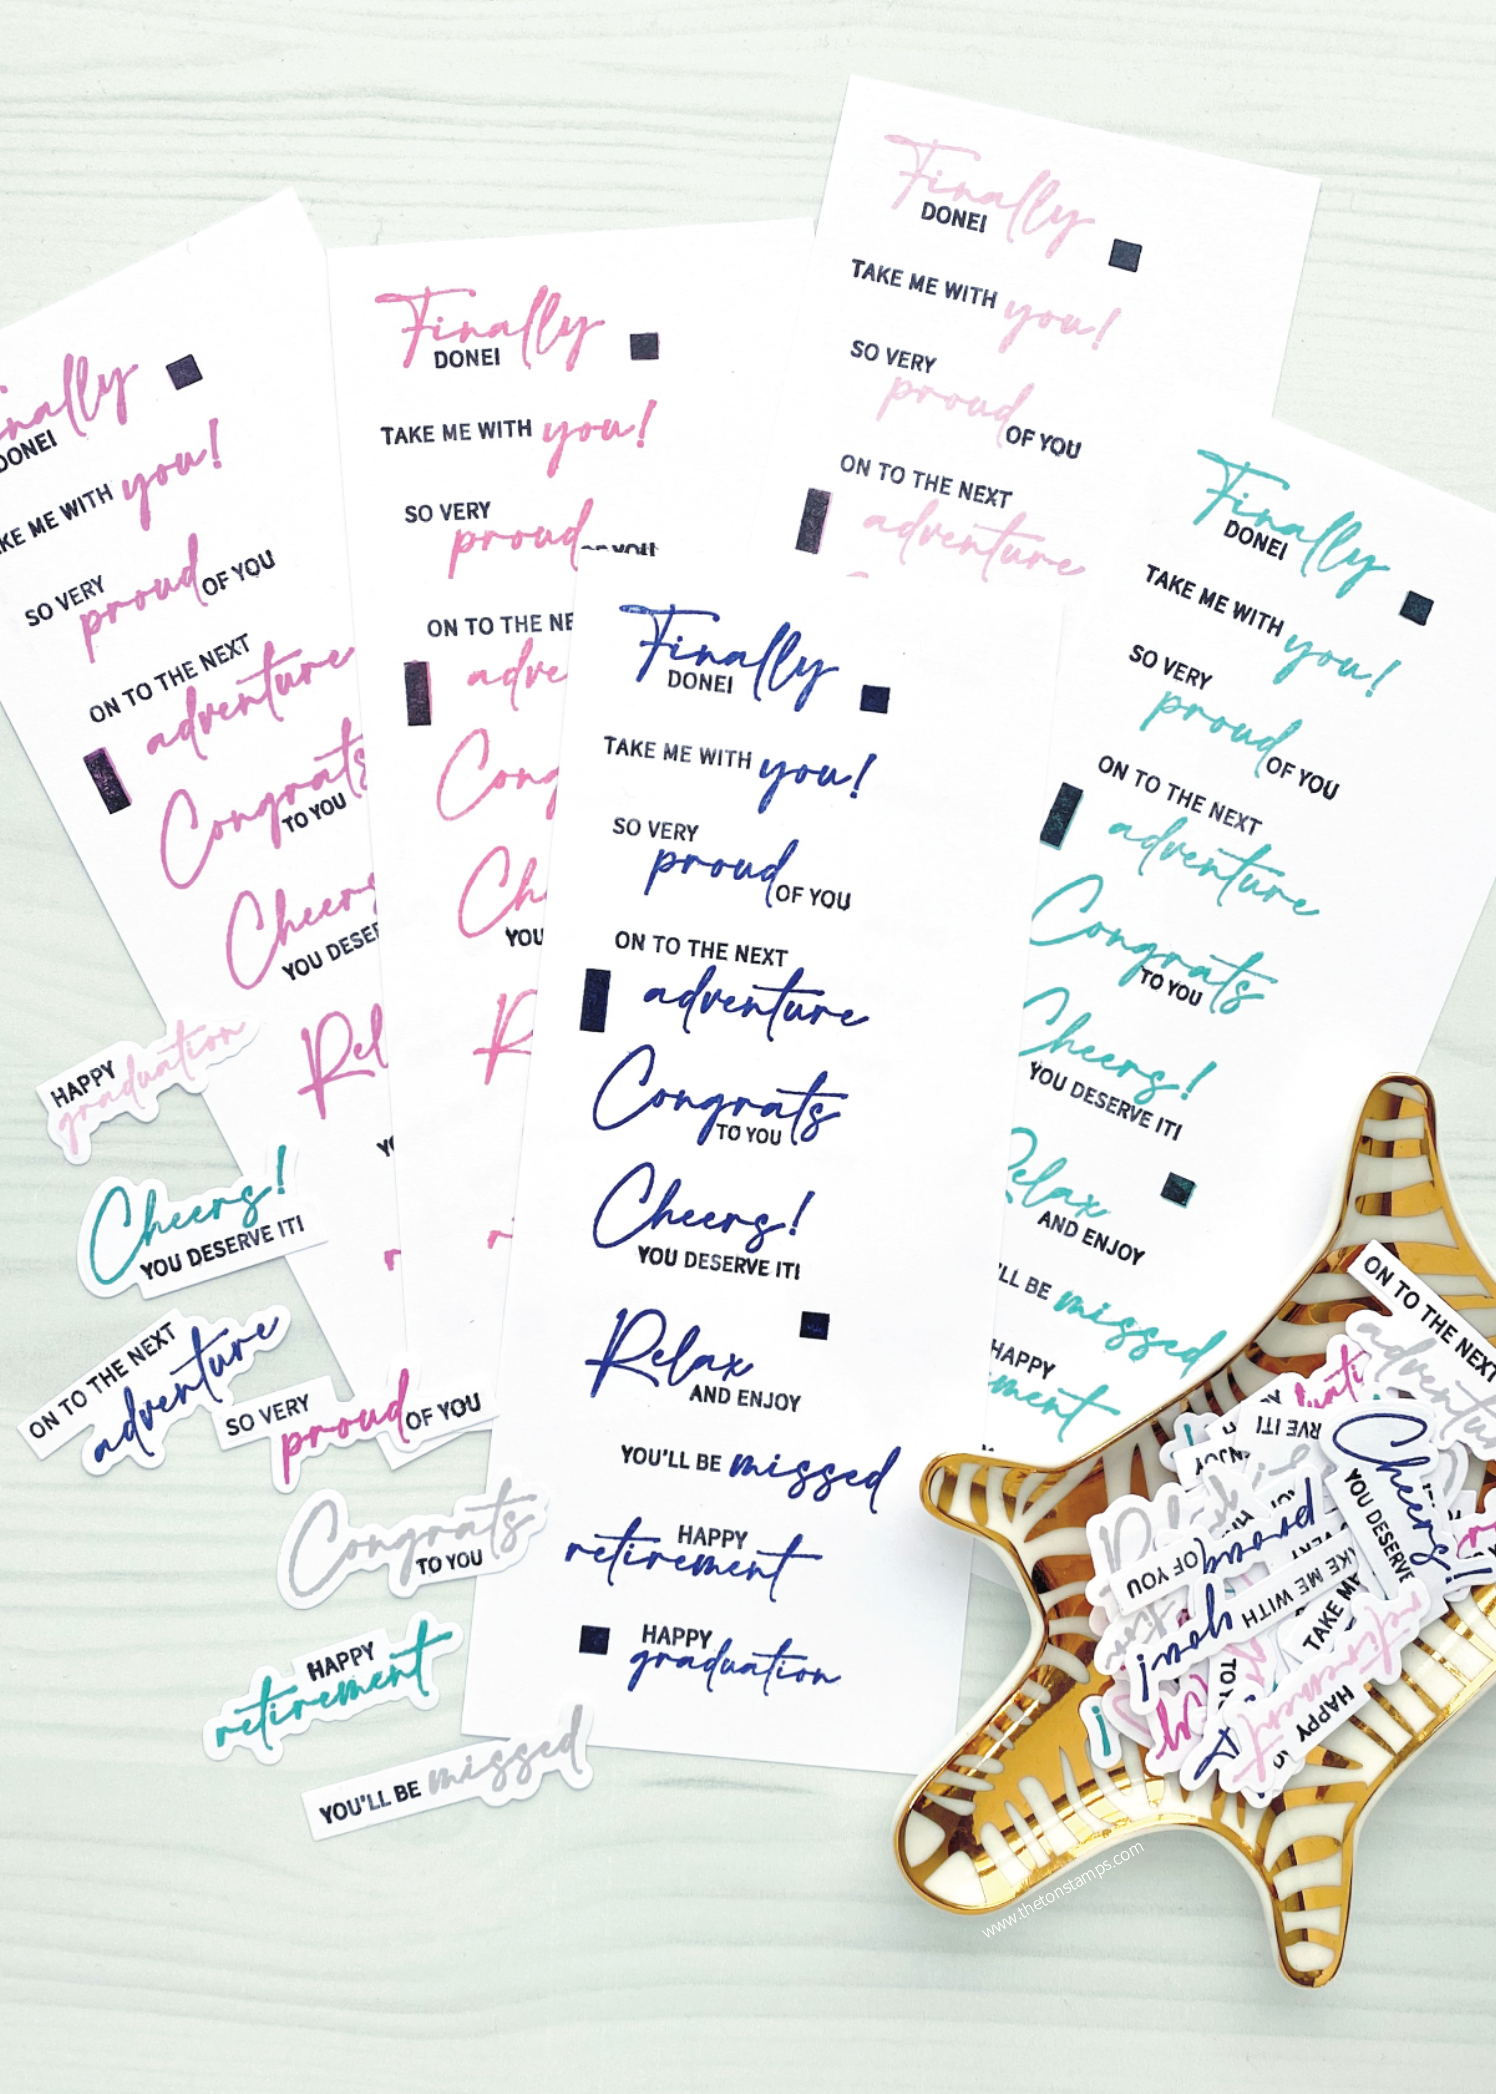 Finally
DONE!
TAKE ME WITH you!
SO VERY
proud OF YOU
ON TO THE NEXT
adventure
Finally
DONE!
TAKE ME WITH you!
SO VERY
proud
ON TO THE
Finally
DONE!
TAKE ME WITH you!
SO VERY
proud OF YOU
ON TO THE NEXT
adventure
Congrats
TO YOU
Cheers
YOU
Finally
DONE!
TAKE ME WITH you!
SO VERY
proud OF YOU
ON TO THE NEXT
adventure
Congrats
TO YOU
Cheers!
YOU DESERVE IT!
Relax
AND ENJOY
YOU'LL BE missed
HAPPY
retirement
HAPPY
graduation
Finally
DONE!
TAKE ME WITH you!
SO VERY
proud OF YOU
ON TO THE NEXT
adventure
Congrats
TO YOU
Cheers!
YOU DESERVE IT!
Relax
AND ENJOY
'LL BE missed
HAPPY
HAPPY
graduation
Cheers!
YOU DESERVE IT!
ON TO THE NEXT
adventure
SO VERY
proud OF YOU
Congrats
TO YOU
HAPPY
retirement
YOU'LL BE missed
ON TO THE NEXT
adventure
Cheers!
YOU DESERVE
proud
OF YOU
ME WITH you!
TAKE
HAPPY
retirement
www.thetonstamps.com